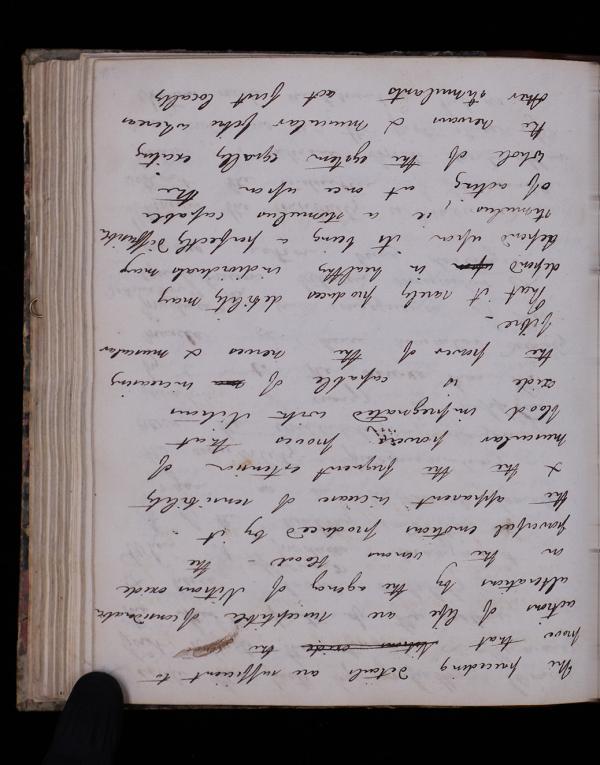 The preceding details are sufficient to
prove that Nitrous oxide the
actions of life are susceptible of considerable
alterations by the agency of Nitrous oxide
on the venous blood - the
powerful emotions produced by it -
the apparent increase of sensibility
& the frequent extension of
muscular powers proves that
blood impregnated with Nitrous
oxide is capable of increasing
the powers of the nerves & muscular
fibre -
That it rarely produces debility may
depend upon in healthy individuals may
depend upon its being a perfectly diffusible
stimulus, ie, a stimulus capable
of acting at once upon the
whole of the system equally exciting
the nervous & muscular fibre whereas
other stimulants act first locally